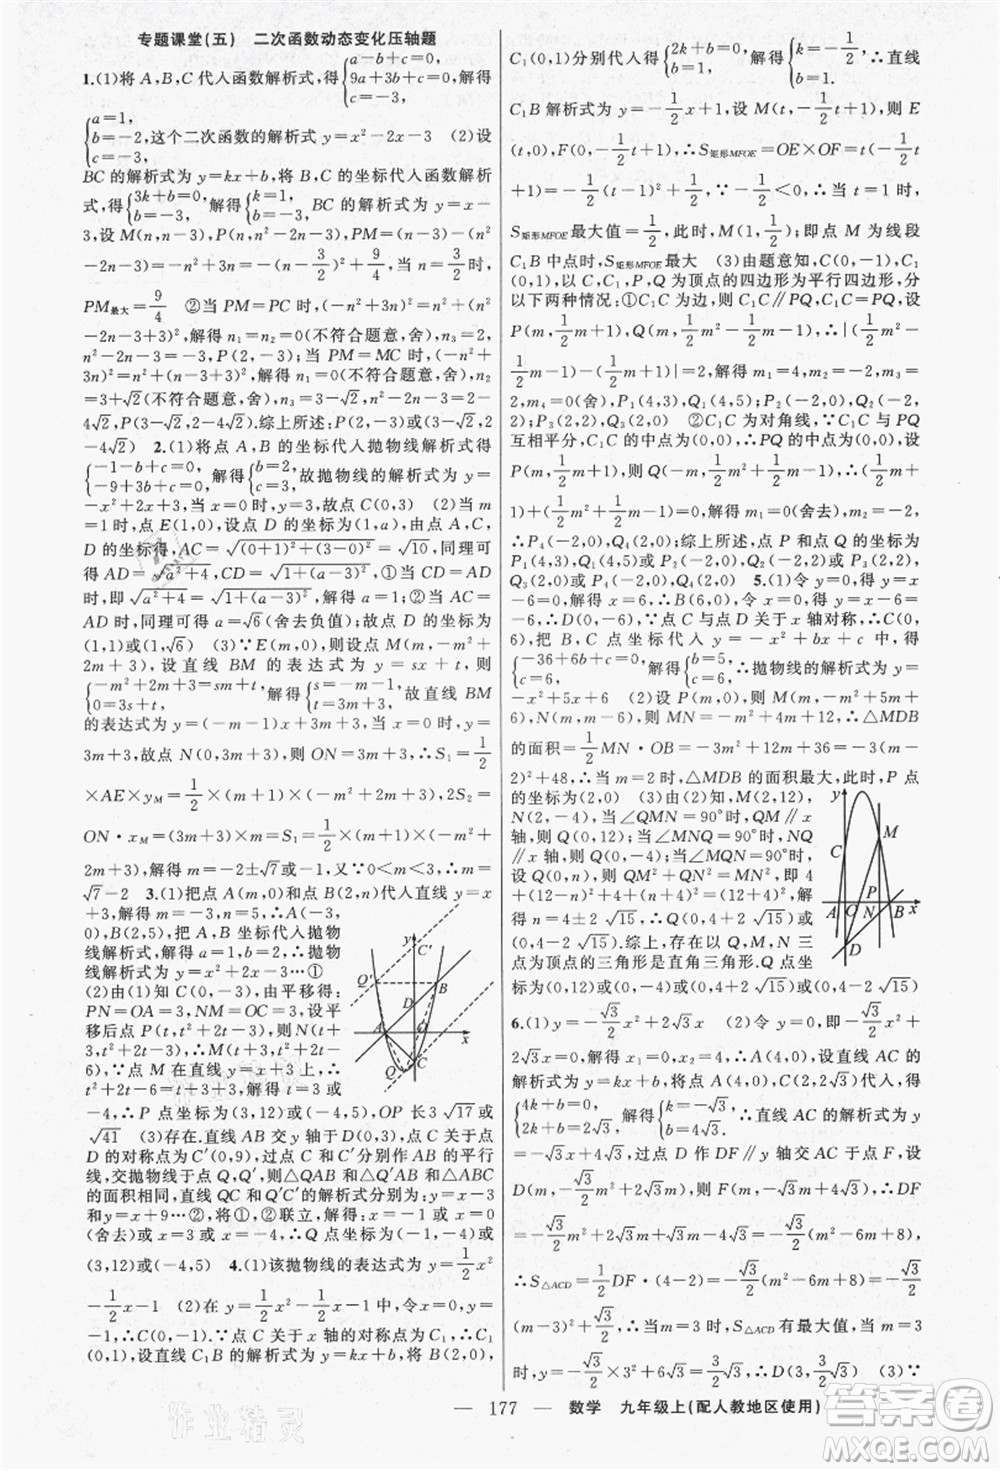 专题课堂(五)　二次函数动态变化压轴题
1.(1)将A,B,C代入函数解析式,得{a-b+c=0, 9a+3b+c=0, c=-3, 解得
{a=1, b=-2, c=-3, 这个二次函数的解析式y=x²-2x-3　(2)设
BC的解析式为y=kx+b,将B,C的坐标代入函数解析
式,得{3k+b=0, b=-3, 解得{k=1, b=-3, BC的解析式为y=x-
3,设M(n,n-3),P(n,n²-2n-3),PM=(n-3)-(n²
-2n-3)=-n²+3n=-(n-3/2)²+9/4,当n=3/2时,
PM最大=9/4　②当PM=PC时,(-n²+3n)²=n²+(n²
-2n-3+3)²,解得n₁=n₂=0(不符合题意,舍),n₃=2,
n²-2n-3=-3,P(2,-3);当PM=MC时,(-n²+
3n)²=n²+(n-3+3)²,解得n₁=0(不符合题意,舍),n₂
=3+√2(不符合题意,舍),n₃=3-√2,n²-2n-3=2-
4√2,P(3-√2,2-4√2);综上所述:P(2,-3)或(3-√2,2
-4√2)　2.(1)将点A,B的坐标代入抛物线解析式得
{-1-b+c=0, -9+3b+c=0, 解得{b=2, c=3, 故抛物线的解析式为y=
-x²+2x+3,当x=0时,y=3,故点C(0,3)　(2)当m
=1时,点E(1,0),设点D的坐标为(1,a),由点A,C,
D的坐标得,AC=√((0+1)²+(3-0)²)=√10,同理可
得AD=√(a²+4),CD=√(1+(3-a)²),①当CD=AD
时,即√(a²+4)=√(1+(3-a)²),解得a=1;②当AC=
AD时,同理可得a=√6(舍去负值);故点D的坐标为
(1,1)或(1,√6)　(3)∵E(m,0),则设点M(m,-m²+
2m+3),设直线BM的表达式为y=sx+t,则
{-m²+2m+3=sm+t, 0=3s+t, 解得{s=-m-1, t=3m+3, 故直线BM
的表达式为y=(-m-1)x+3m+3,当x=0时,y=
3m+3,故点N(0,3m+3),则ON=3m+3,∴S₁=1/2
×AE×yM=1/2×(m+1)×(-m²+2m+3),2S₂=
ON·xM=(3m+3)×m=S₁=1/2(m+1)×(-m²+
2m+3),解得m=-2±√7或-1,又∵0<m<3,∴m=
√7-2　3.(1)把点A(m,0)和点B(2,n)代入直线y=x
+3,解得:m=-3,n=5,∴A(-3,
0),B(2,5),把A,B坐标代入抛物
线解析式得a=1,b=2,∴抛物线
解析式为y=x²+2x-3…①
(2)由(1)知C(0,-3),由平移得:
PN=OA=3,NM=OC=3,设平
移后点P(t,t²+2t-3),则N(t
+3,t²+2t-3),∴M(t+3,t²+2t-
6),∵点M在直线y=x+3上,∴
t²+2t-6=t+3+3,解得:t=3或
-4,∴P点坐标为(3,12)或(-4,5),OP长3√17或
√41　(3)存在.直线AB交y轴于D(0,3),点C关于点
D的对称点C′(0,9),过点C和C′分别作AB的平行
线,交抛物线于点Q,Q′,则△QAB和△Q′AB和△ABC
的面积相同,直线QC和Q′C′的解析式分别为:y=x-3
和y=x+9…②,将①,②联立,解得:x=-1或x=0
(舍去)或x=3或x=-4,∴Q点坐标为(-1,-4)或
(3,12)或(-4,5)　4.(1)该抛物线的表达式为y=1/2x²
-1/2x-1　(2)在y=1/2x²-1/2x-1中,令x=0,则y=
-1,∴C(0,-1).∵点C关于x轴的对称点为C₁,∴C₁
(0,1),设直线C₁B的解析式为y=kx+b,将B(2,0),
C₁(0,1)分别代入,得{2k+b=0, b=1, 解得{k=-1/2, b=1, ∴直线
C₁B解析式为y=-1/2x+1,设M(t,-1/2t+1),则E
(t,0),F(0,-1/2t+1),∴S矩形MFOE=OE×OF=t(-1/2t
+1)=-1/2(t-1)²+1/2,∵-1/2<0,∴当t=1时,
S矩形MFOE最大值=1/2,此时,M(1,1/2);即点M为线段
C₁B中点时,S矩形MFOE最大　(3)由题意知,C(0,-1),C₁
(0,1),以C,C₁,P,Q为顶点的四边形为平行四边形,分
以下两种情况:①C₁C为边,则C₁C∥PQ,C₁C=PQ,设
P(m,1/2m+1),Q(m,1/2m²-1/2m-1),∴|(1/2m²-
1/2m-1)-(1/2m+1)|=2,解得:m₁=4,m₂=-2,m₃
=2,m₄=0(舍),P₁(4,3),Q₁(4,5);P₂(-2,0),Q₂(-2,
2);P₃(2,2),Q₃(2,0)　②C₁C为对角线,∵C₁C与PQ
互相平分,C₁C的中点为(0,0),∴PQ的中点为(0,0),设
P(m,1/2m+1),则Q(-m,1/2m²+1/2m-1),∴(1/2m+
1)+(1/2m²+1/2m-1)=0,解得m₁=0(舍去),m₂=-2,
∴P₄(-2,0),Q₄(2,0);综上所述,点P和点Q的坐标
为P₁(4,3),Q₁(4,5)或P₂(-2,0),Q₂(-2,2)或P₃(2,2),
Q₃(2,0)或P₄(-2,0),Q₄(2,0)　5.(1)令y=0,得y=x
-6=0,解得x=6,∴B(6,0),令x=0,得y=x-6=-
6,∴D(0,-6),∵点C与点D关于x轴对称,∴C(0,
6),把B,C点坐标代入y=-x²+bx+c中,得
{-36+6b+c=0, c=6, 解得{b=5, c=6, ∴抛物线的解析式为y=
-x²+5x+6　(2)设P(m,0),则M(m,-m²+5m+
6),N(m,m-6),则MN=-m²+4m+12,∴△MDB
的面积=1/2MN·OB=-3m²+12m+36=-3(m-
2)²+48,∴当m=2时,△MDB的面积最大,此时,P点
的坐标为(2,0)　(3)由(2)知,M(2,12),
N(2,-4),当∠QMN=90°时,QM∥x
轴,则Q(0,12);当∠MNQ=90°时,NQ
∥x轴,则Q(0,-4);当∠MQN=90°时,
设Q(0,n),则QM²+QN²=MN²,即4
+(12-n)²+4+(n+4)²=(12+4)²,解
得n=4±2√15,∴Q(0,4+2√15)或(0,4
-2√15).综上,存在以Q,M,N三点为
顶点的三角形是直角三角形.Q点坐标
为(0,12)或(0,-4)或(0,4+2√15)或(0,4-2√15)
6.(1)y=-√3/2x²+2√3x　(2)令y=0,即-√3/2x²+
2√3x=0,解得:x=0或x=4,∴C(4,0),设直线AC的
解析式为y=kx+b,将点A(4,0),C(2,2√3)代入,得
{4k+b=0, 2k+b=2√3, 解得{k=-√3, b=4√3. ∴直线AC的解析式为y
=-√3x+4√3,过点D作DF∥y轴交AC于点F,设
D(m,-√3/2m²+2√3m),则F(m,-√3m+4√3),∴DF
=-√3/2m²+2√3m+√3m-4√3=-√3/2(m²-6m+8),
∴S△ACD=1/2DF·(4-2)=-√3/2(m²-6m+8)=-√3/2
(m-3)²+√3/2,∴当m=3时,S△ACD有最大值,当m=3
时,y=-√3/2×3²+6√3=3√3/2,∴D(3,3√3/2)　(3)∵
y
C′
Q′
B
A
O
x
C
Q
y
M
C
A
O
P
N
B
x
D
— 177 — 数学　九年级上(配人教地区使用)
作业精灵
答案圈
MXQE.COM